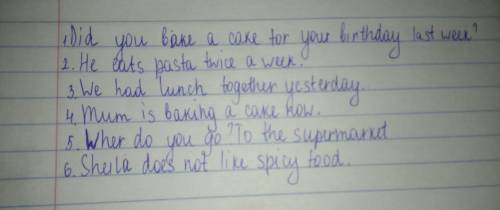 1. Did you bake a cake for your birthday last week?
2. He eats pasta twice a week.
3. We had lunch together yesterday.
4. Mum is baking a cake now.
5. Wher do you go? To the supermarket
6. Sheila does not like spicy food.